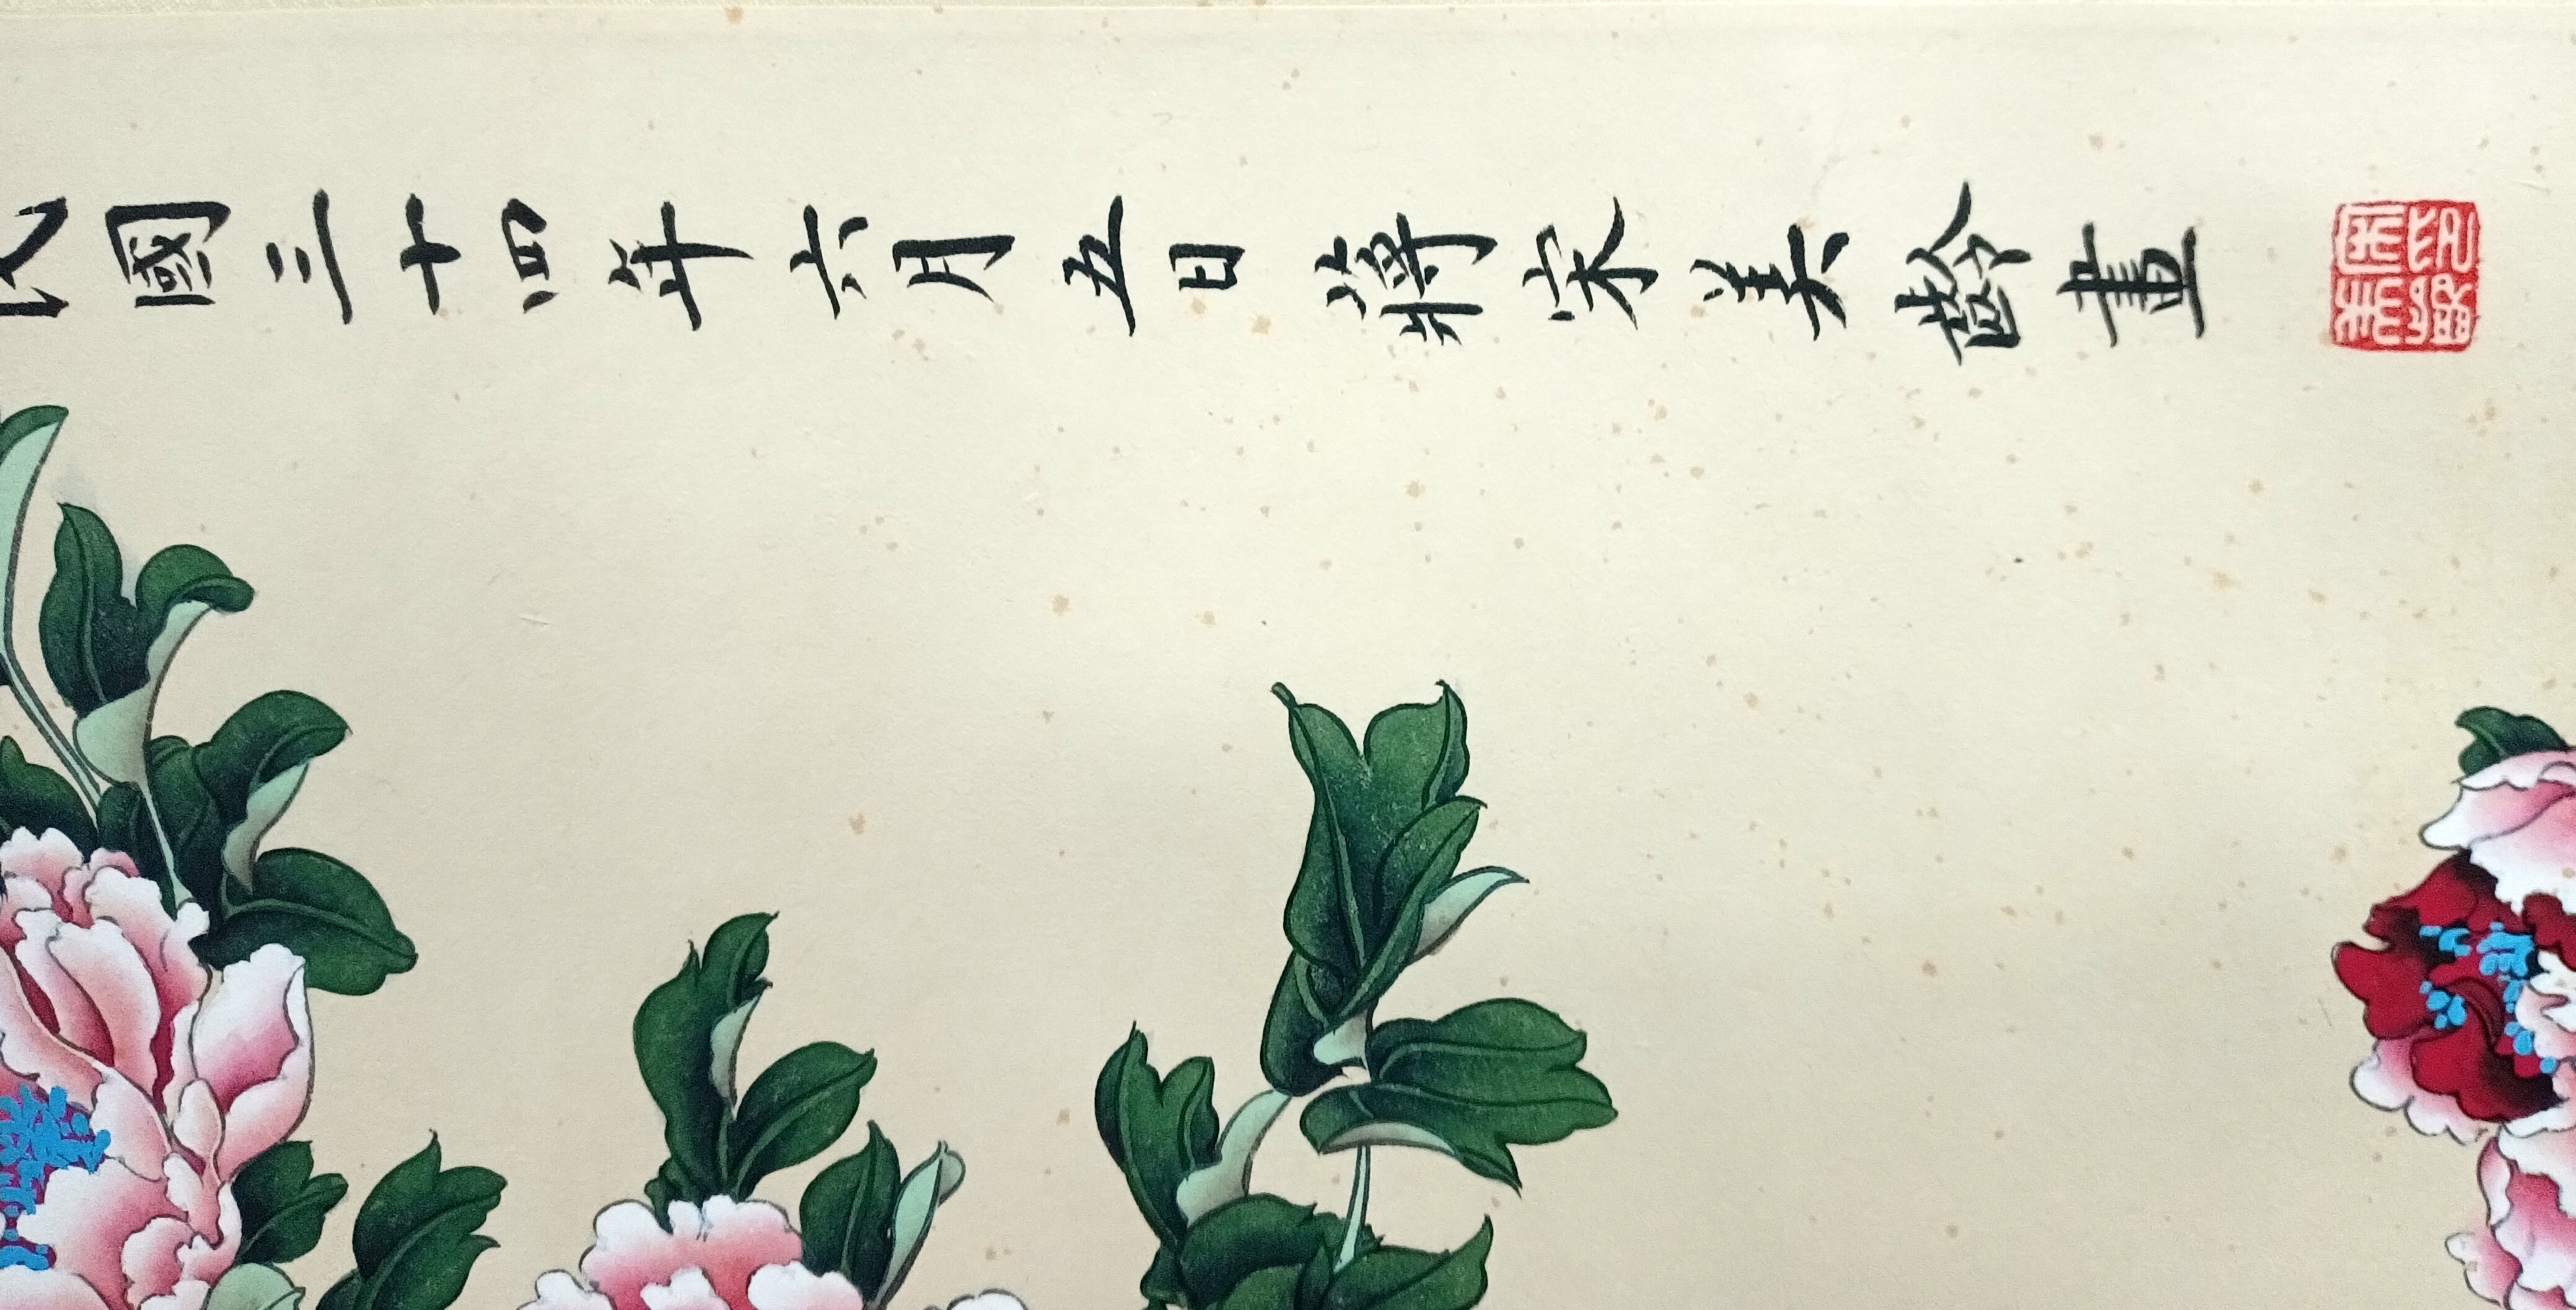 民國三十四年六月五日蔣宋美齡畫
宋印美齡